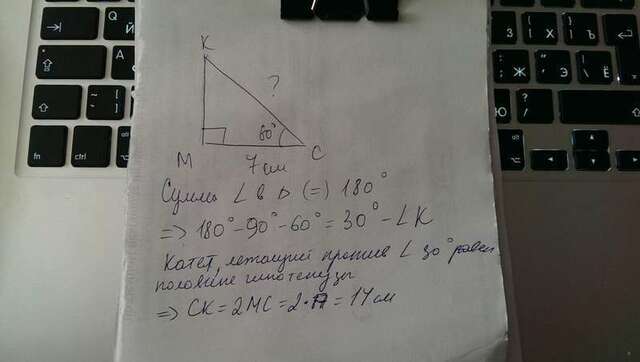 K
?
60°
M
7 см
C
Сумма ∠ в △ (=) 180°
=> 180° - 90° - 60° = 30° - ∠K
Катет, лежащий против ∠ 30° равен
половине гипотенузы
=> CK = 2MC = 2·7 = 14 см
fn
control
option
Й
Ф
~
Ч
Х
Ъ
Ж
Э
Ё